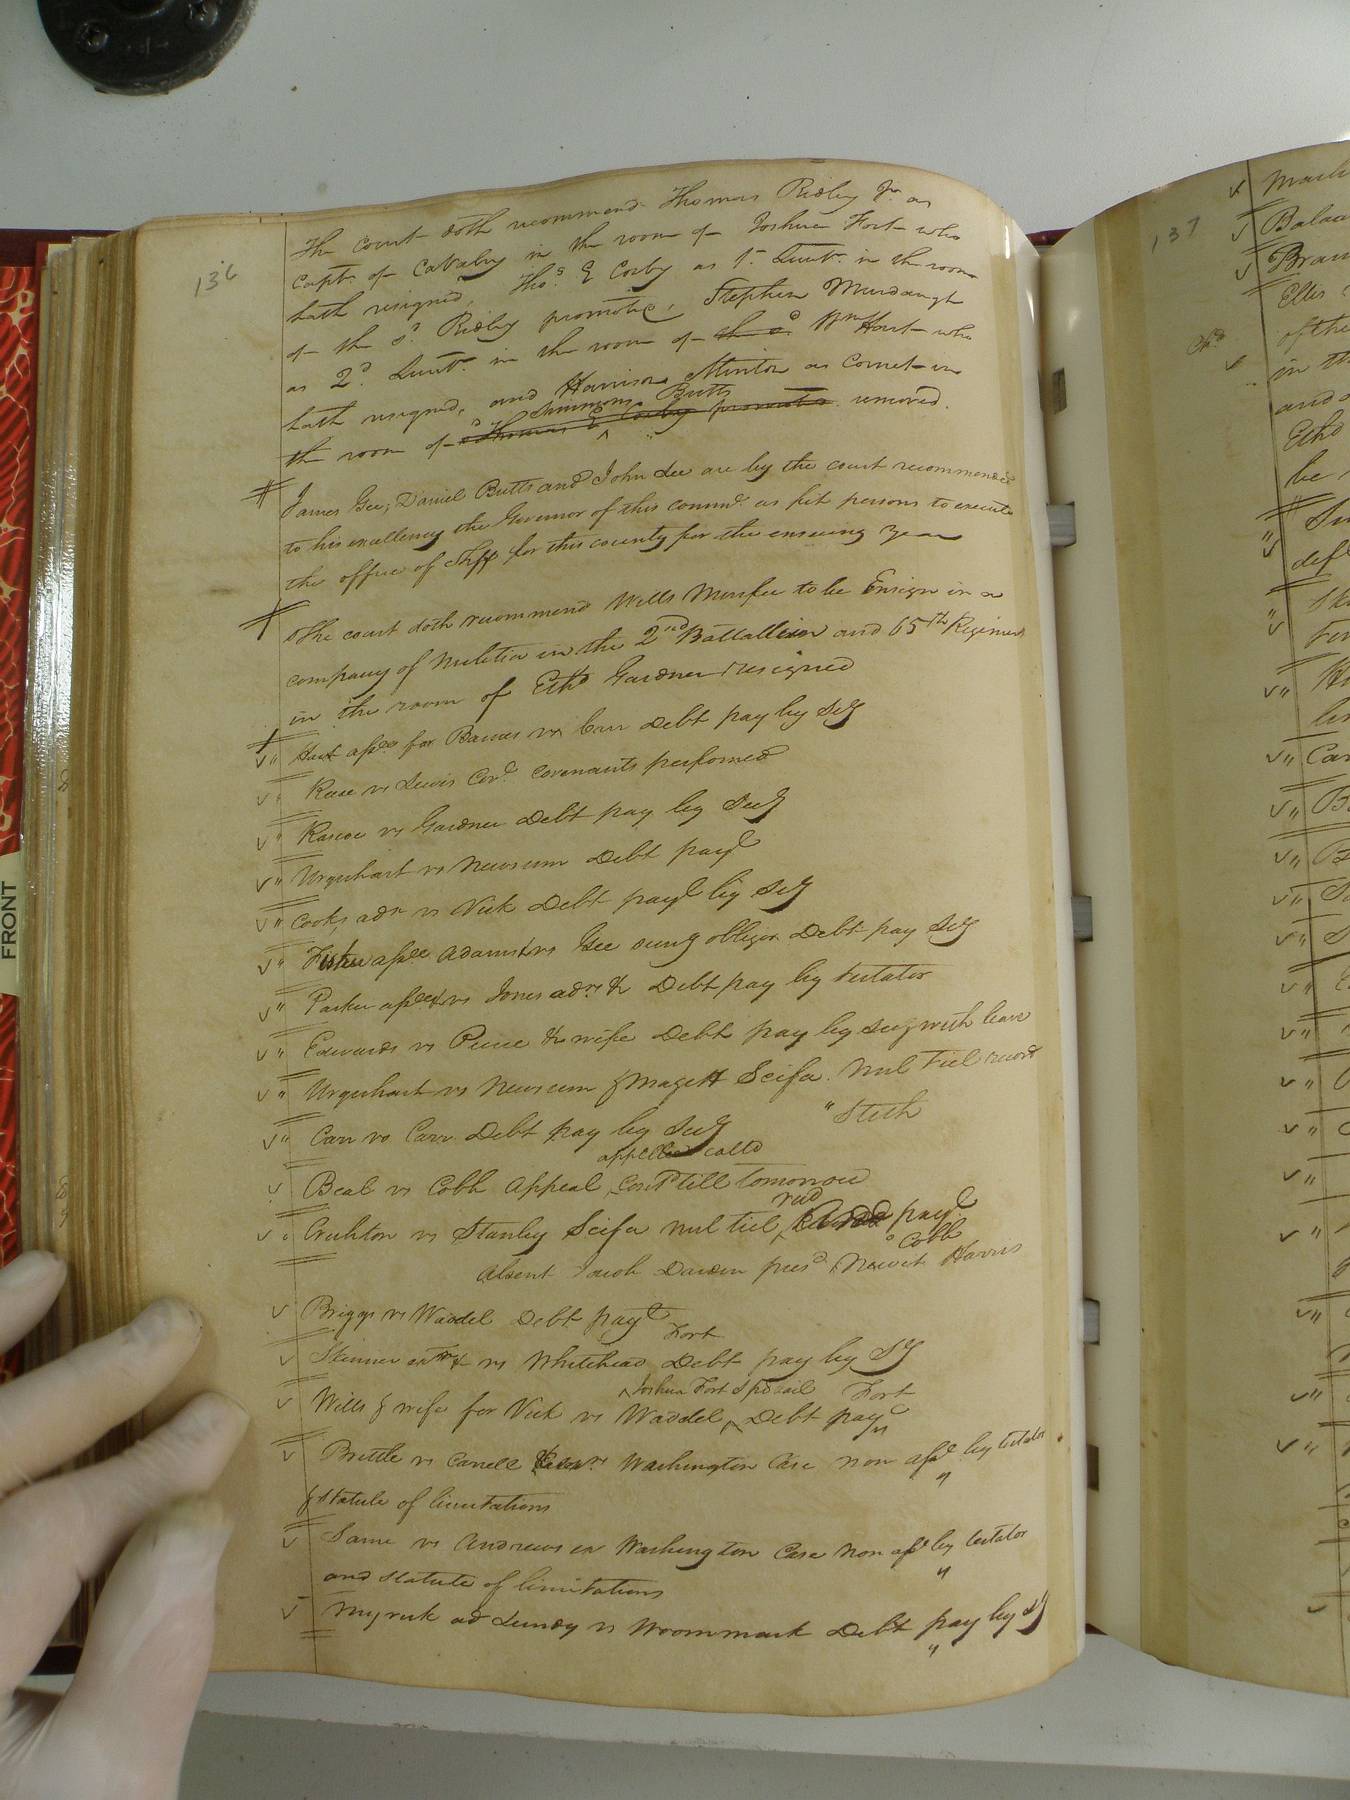 136
The court doth recommend Thomas Ridley Jr. as
Capt. of Cavalry in the room of Joshua Fort who
hath resigned, Thos. E Corby as 1st. Lieut. in the room
of the sd. Ridley promoted, Stephen Murdaugh
as 2d. Lieut. in the room of the sd. Wm Hart who
hath resigned, and Harrison Minton as Cornet in
Simmons Butts
the room of Thomas E Corby promoted removed.
James Gee, Daniel Butts and John Lee are by the court recommended
to his excellency the Governor of this commd. as fit persons to execute
the office of Shff for this county for the ensuing year
The court doth recommend Wills Murfee to be Ensign in a
company of militia in the 2nd Battallion and 65th Regiment
in the room of Ethd Gardner resigned
Hart apee for Barnes vs Carr Debt pay by Sug
vs Lewis Covt. covenants performed
Rascoe vs Gardner Debt pay by Sug
Urquhart vs Newsum Debt payt
Cooks adr vs Vick Debt payt by Sug
apee Adams vs Gee surv g obligor Debt pay Sug
Parker apee & vs Jones adrs & Debt pay by testator
Edwards vs & wife Debt pay by Sug with leave
Urquhart vs Newsum & Magett Scifa. Nul tiel record
" Stith
Carr vs Carr Debt pay by Sug
appellee calld
Beal vs Cobb Appeal contd till tomorrow
recd
Crichton vs Stanley Scifa nul tiel payt
Cobb
Absent Jacob Darden presd. Newit Harris
Briggs vs Waddel Debt payt
Fort
Skinner exr & vs Whitehead Debt pay by Sg
Joshua Fort spe bail Fort
Wills & wife for Vick vs Waddel Debt pay
Brittle vs Carrell vs Washington Case non apt by testator
& statute of limitations
Same vs Andrews ex Washington Case Non apt by testator
and statute of limitations
Myrick ad Lundy vs Woommack Debt pay by Sg
137
Ellis
of the
in th
Ethd
be
Car